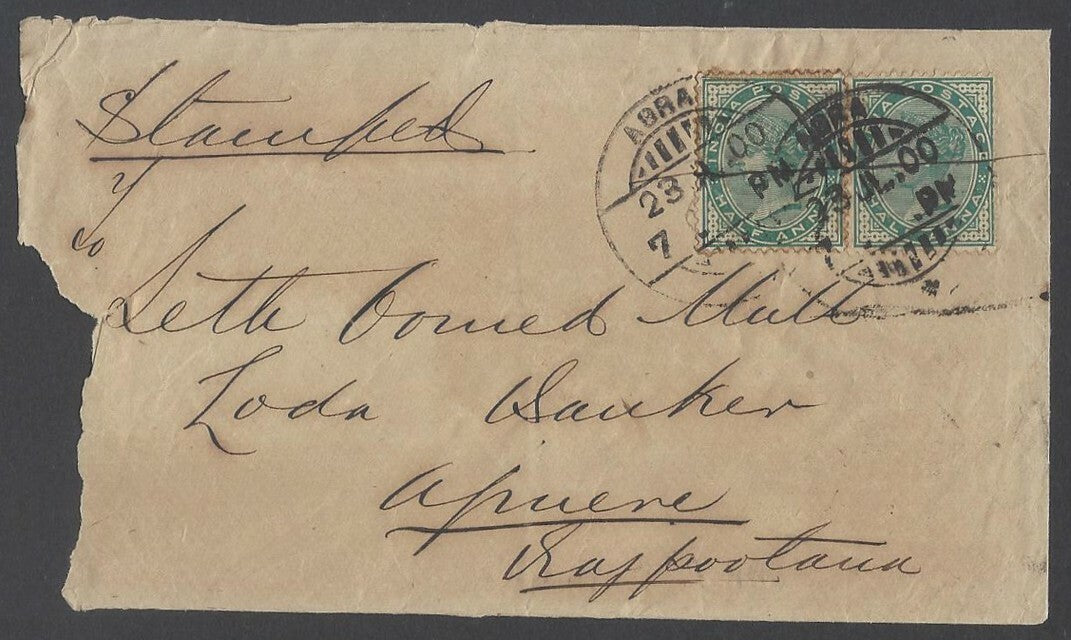 Stamped
To
Seth Oomed Mull
Loda Banker
Ajmere
Rajpootana
INDIA POSTAGE
HALF ANNA
INDIA POSTAGE
HALF ANNA
ABRA
23 JL.00
7 PM
ABRA
23 JL.00
7 .PM